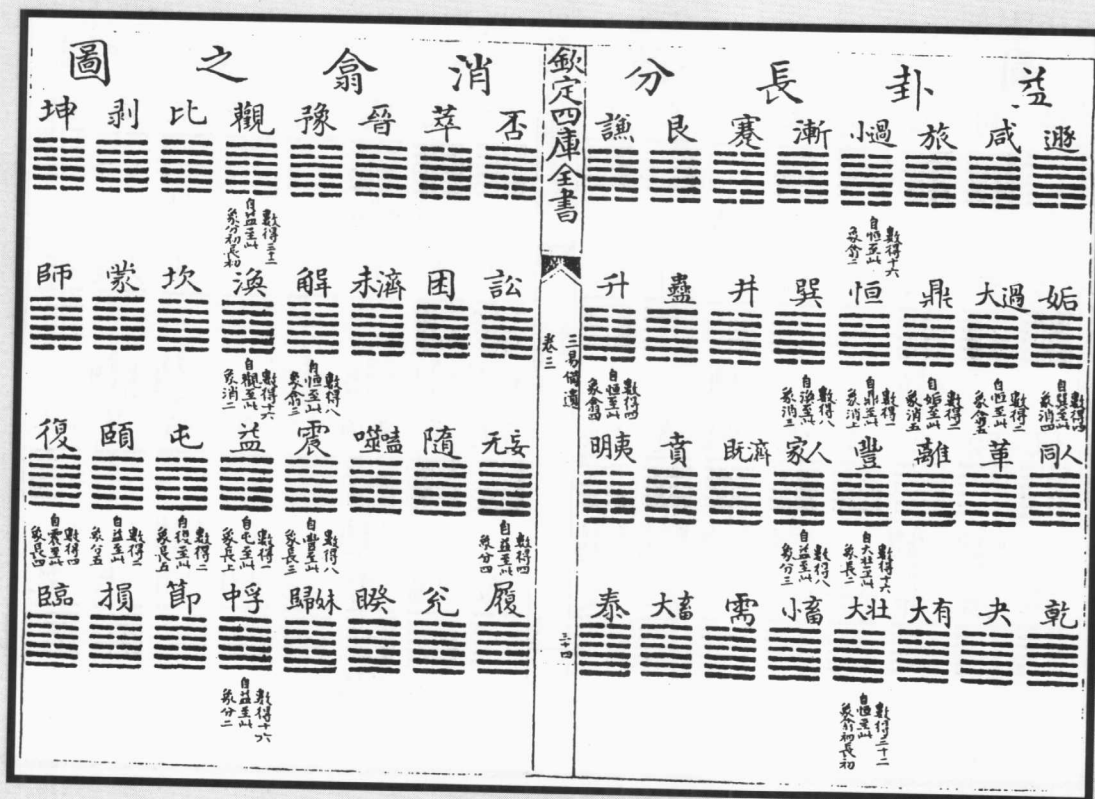 益卦長分
遯 咸 旅 小過 漸 蹇 艮 謙
數得十六
自恒至此
象翕二
姤 大過 鼎 恒 巽 井 蠱 升
數得四
自巽至此
象消四
數得二
自恒至此
象翕五
數得二
自姤至此
象消五
數得一
自鼎至此
象消上
數得八
自渙至此
象消三
數得四
自恒至此
象翕四
同人 革 離 豐 家人 既濟 賁 明夷
數得十六
自大壯至此
象長二
數得八
自益至此
象分三
乾 夬 大有 大壯 小畜 需 大畜 泰
數得三十二
自恒至此
象翕初長初
欽定四庫全書
三易備遺
卷三
三十四
消翕之圖
否 萃 晉 豫 觀 比 剥 坤
數得三十二
自益至此
象分初長初
訟 困 未濟 解 渙 坎 蒙 師
數得八
自恒至此
象翕三
數得十六
自觀至此
象消二
无妄 隨 噬嗑 震 益 屯 頤 復
數得四
自益至此
象分四
數得八
自豐至此
象長三
數得一
自屯至此
象長上
數得二
自復至此
象長五
數得二
自益至此
象分五
數得四
自震至此
象長四
履 兌 睽 歸妹 中孚 節 損 臨
數得十六
自益至此
象分二